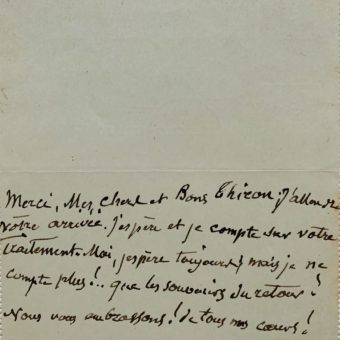 Merci, Mes chers et Bons Thiron, J'attends
votre arrivée. J'espère et je compte sur votre
traitement. Moi, j'espère toujours mais je ne
compte plus!.. que les souvenirs du retour!
Nous vous embrassons! de tous nos cœurs!